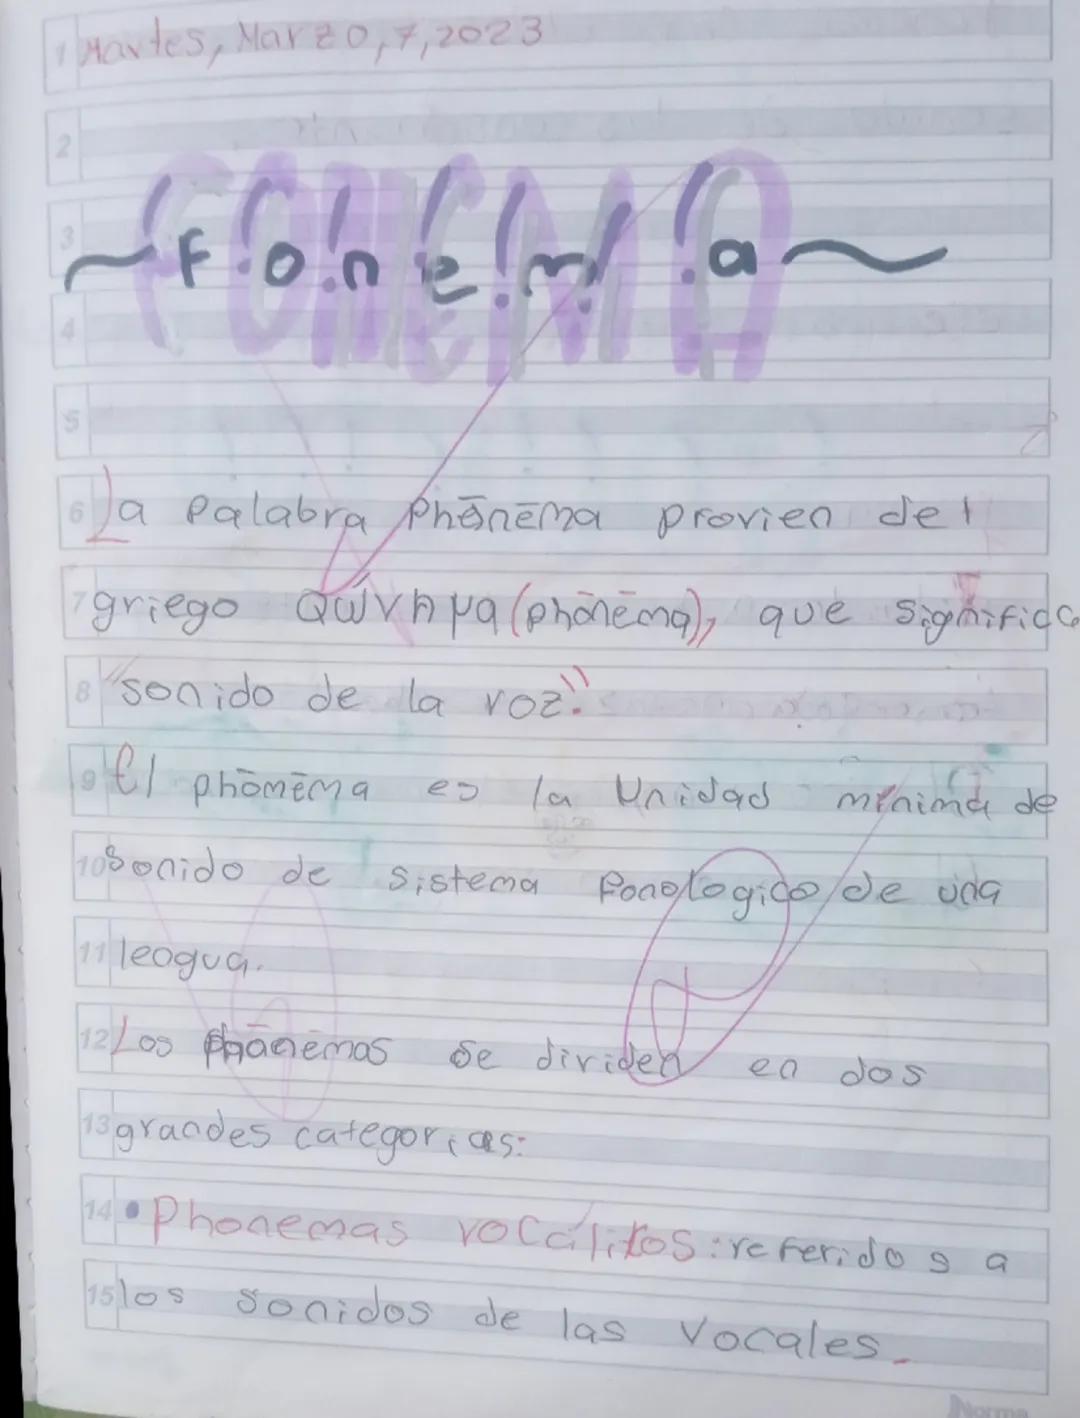 Martes, Marzo, 7, 2023
FONEMA
~Fonema~
La Palabra Phōnēma provien det
griego Qώvhμa (phōnēma), que significa
"sonido de la voz".
El phōmēma es la Unidad mínima de
sonido de sistema fonologico de una
leogua.
Los phōnēmas se dividen en dos
grandes categorias:
• Phonemas vocálitos: referidos a
los sonidos de las Vocales.
Norma
1
2
3
4
5
6
7
8
9
10
11
12
13
14
15